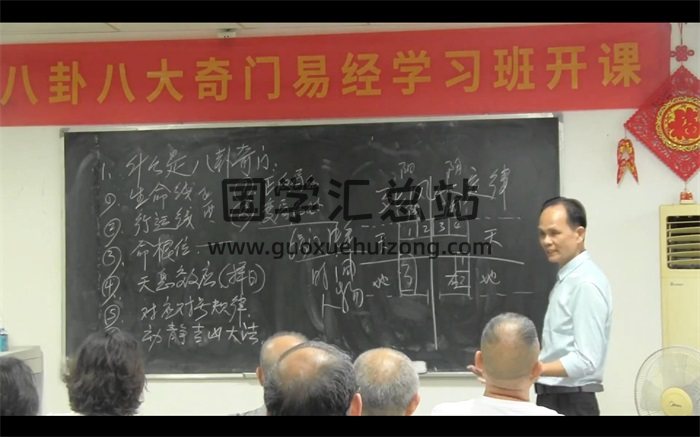 八卦八大奇门易经学习班开课
1、什么是八卦奇门
① 生命线
② 行运线
③ 命根位
④ 天息效应(择日)
⑤ 对应对号规律
动静吉凶大法
阳 阴 定律
1 2 3 4
天 天
时间
人物
地 地
国学汇总站
www.guoxuehuizong.com